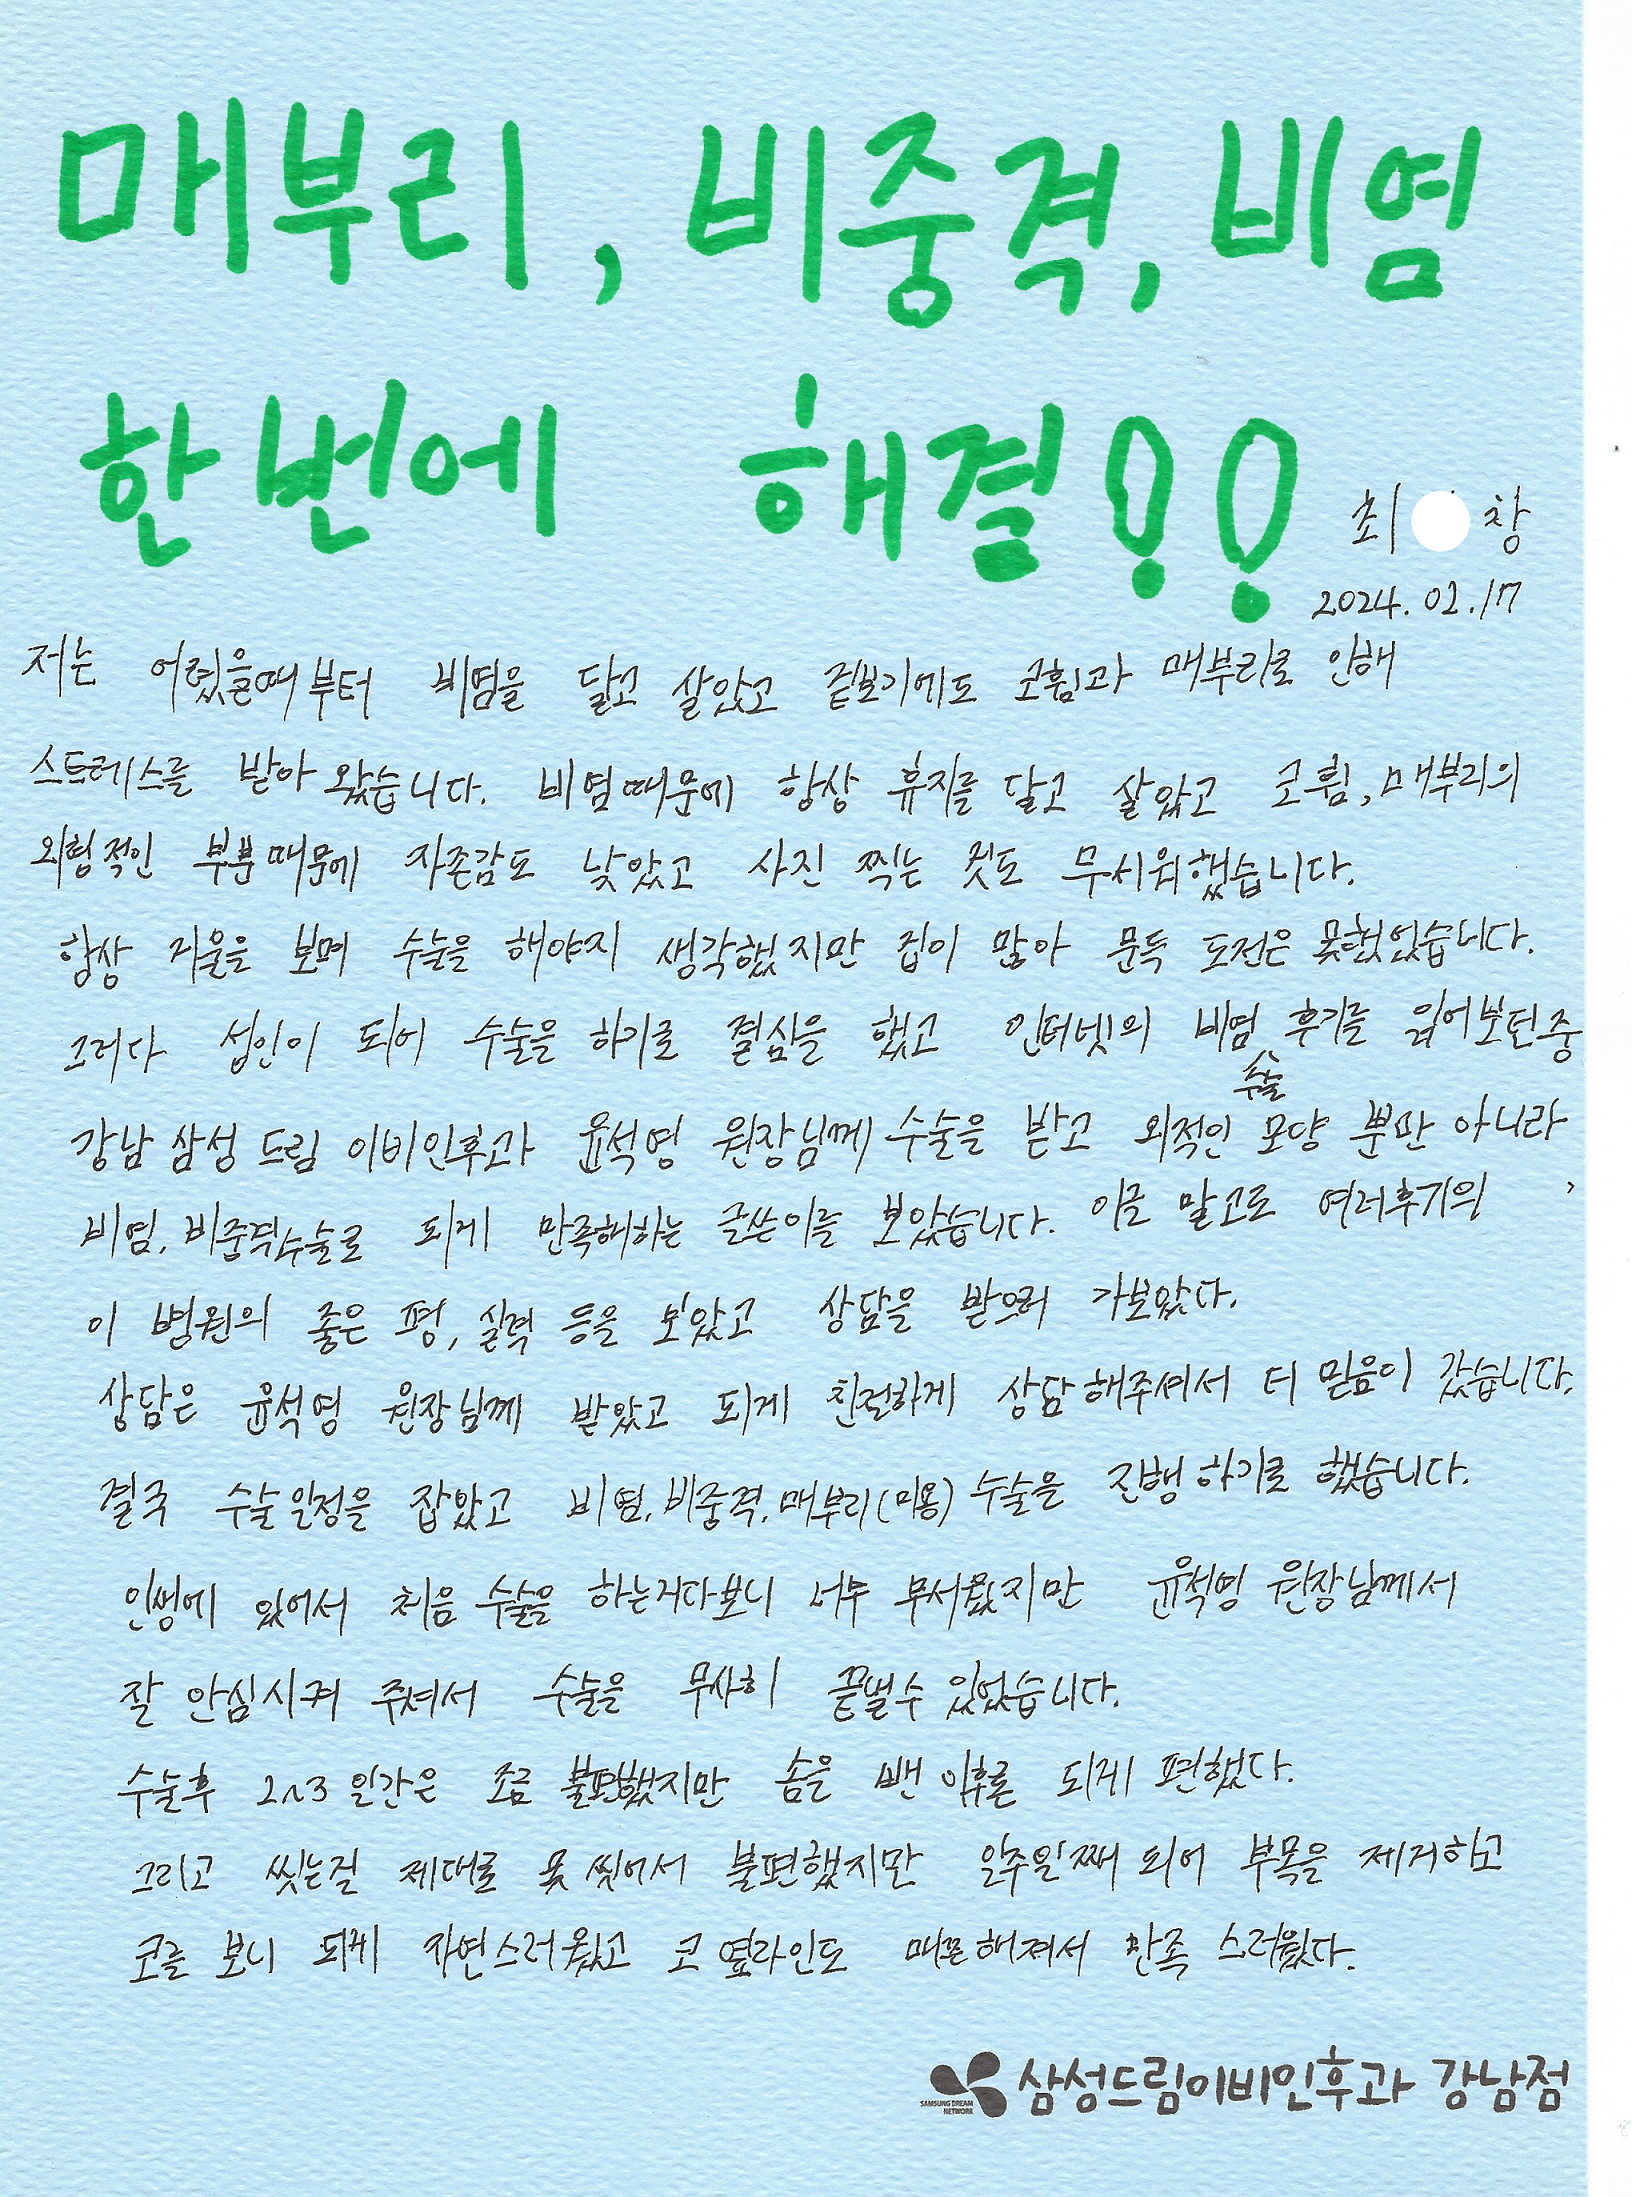 매부리, 비중격, 비염
한번에 해결!!
최 창
2024. 02. 17
저는 어렸을때부터 비염을 달고 살았고 겉보기에도 코휨과 매부리로 인해
스트레스를 받아 왔습니다. 비염때문에 항상 휴지를 달고 살았고 코휨, 매부리의
외형적인 부분때문에 자존감도 낮았고 사진 찍는 것도 무서워했습니다.
항상 거울을 보며 수술을 해야지 생각했지만 겁이 많아 문득 도전은 못했었습니다.
그러다 성인이 되어 수술을 하기로 결심을 했고 인터넷의 비염 수술 후기를 읽어보던중
강남 삼성 드림 이비인후과 윤석영 원장님께 수술을 받고 외적인 모양 뿐만 아니라
비염, 비중격수술로 되게 만족해하는 글쓴이를 보았습니다. 이글 말고도 여러후기의
이 병원의 좋은 평, 실력 등을 보았고 상담을 받으러 가보았다.
상담은 윤석영 원장님께 받았고 되게 친절하게 상담해주셔서 더 믿음이 갔습니다.
결국 수술일정을 잡았고 비염, 비중격, 매부리(미용) 수술을 진행하기로 했습니다.
인생에 있어서 처음 수술을 하는거다보니 너무 무서웠지만 윤석영 원장님께서
잘 안심시켜 주셔서 수술을 무사히 끝낼수 있었습니다.
수술후 2~3일간은 조금 불편했지만 솜을 뺀 이후론 되게 편했다.
그리고 씻는걸 제대로 못 씻어서 불편했지만 일주일째 되어 부목을 제거하고
코를 보니 되게 자연스러웠고 코 옆라인도 매끈해져서 만족 스러웠다.
SAMSUNG DREAM
NETWORK
삼성드림이비인후과 강남점